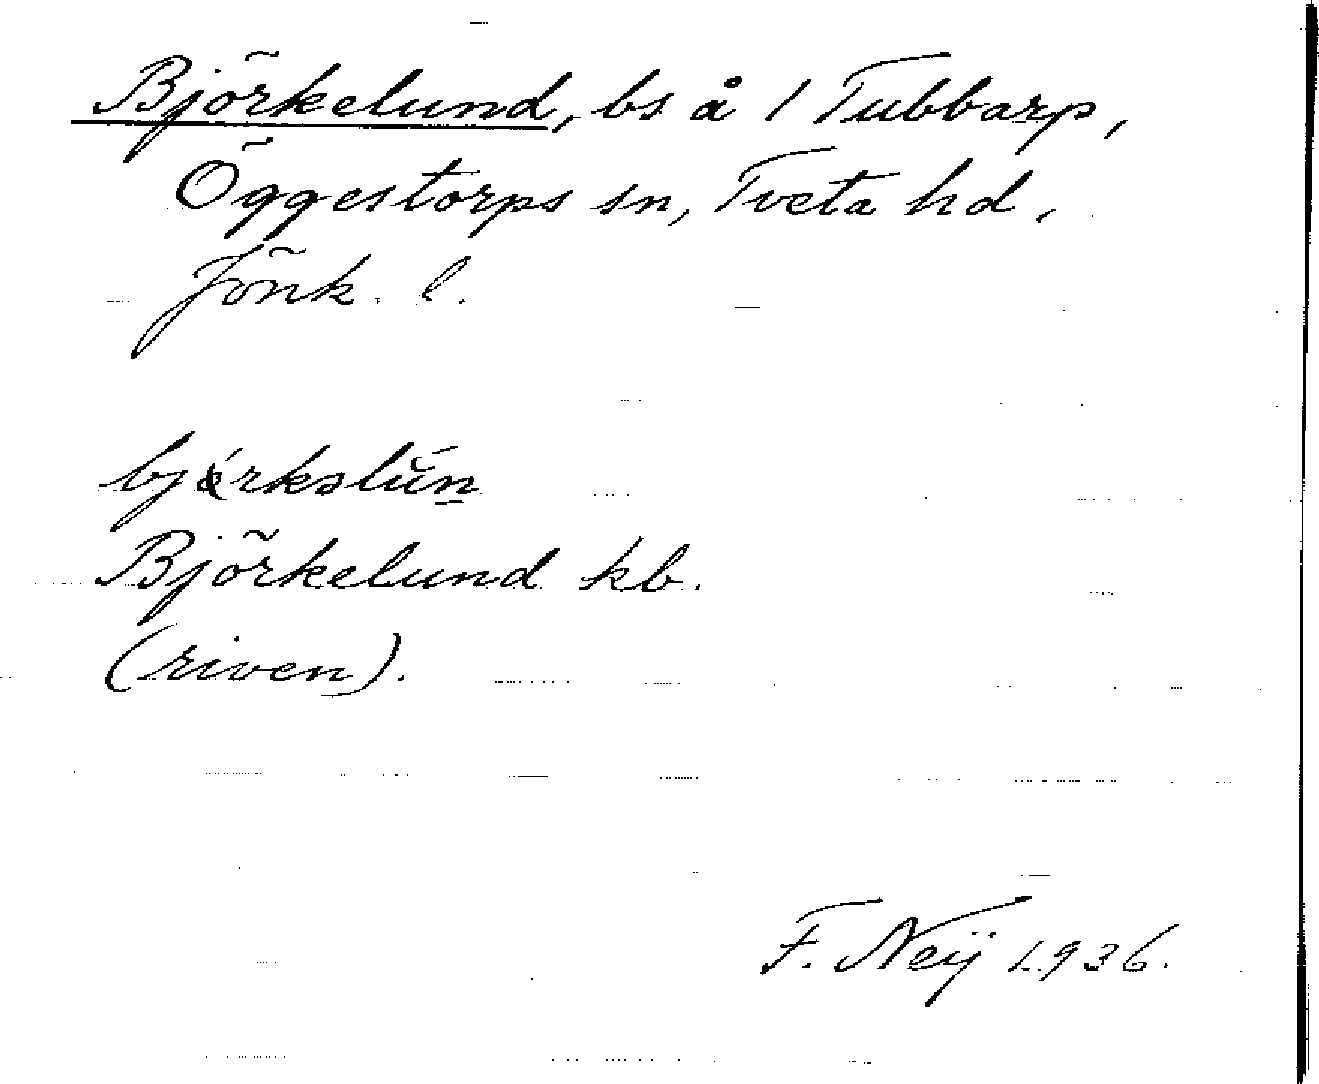 Björkelund, bs å 1 Tubbarp,
Öggestorps sn, Tveta hd,
Jönk. l.
Björkelund kb.
(riven).
F. Neij 1936.